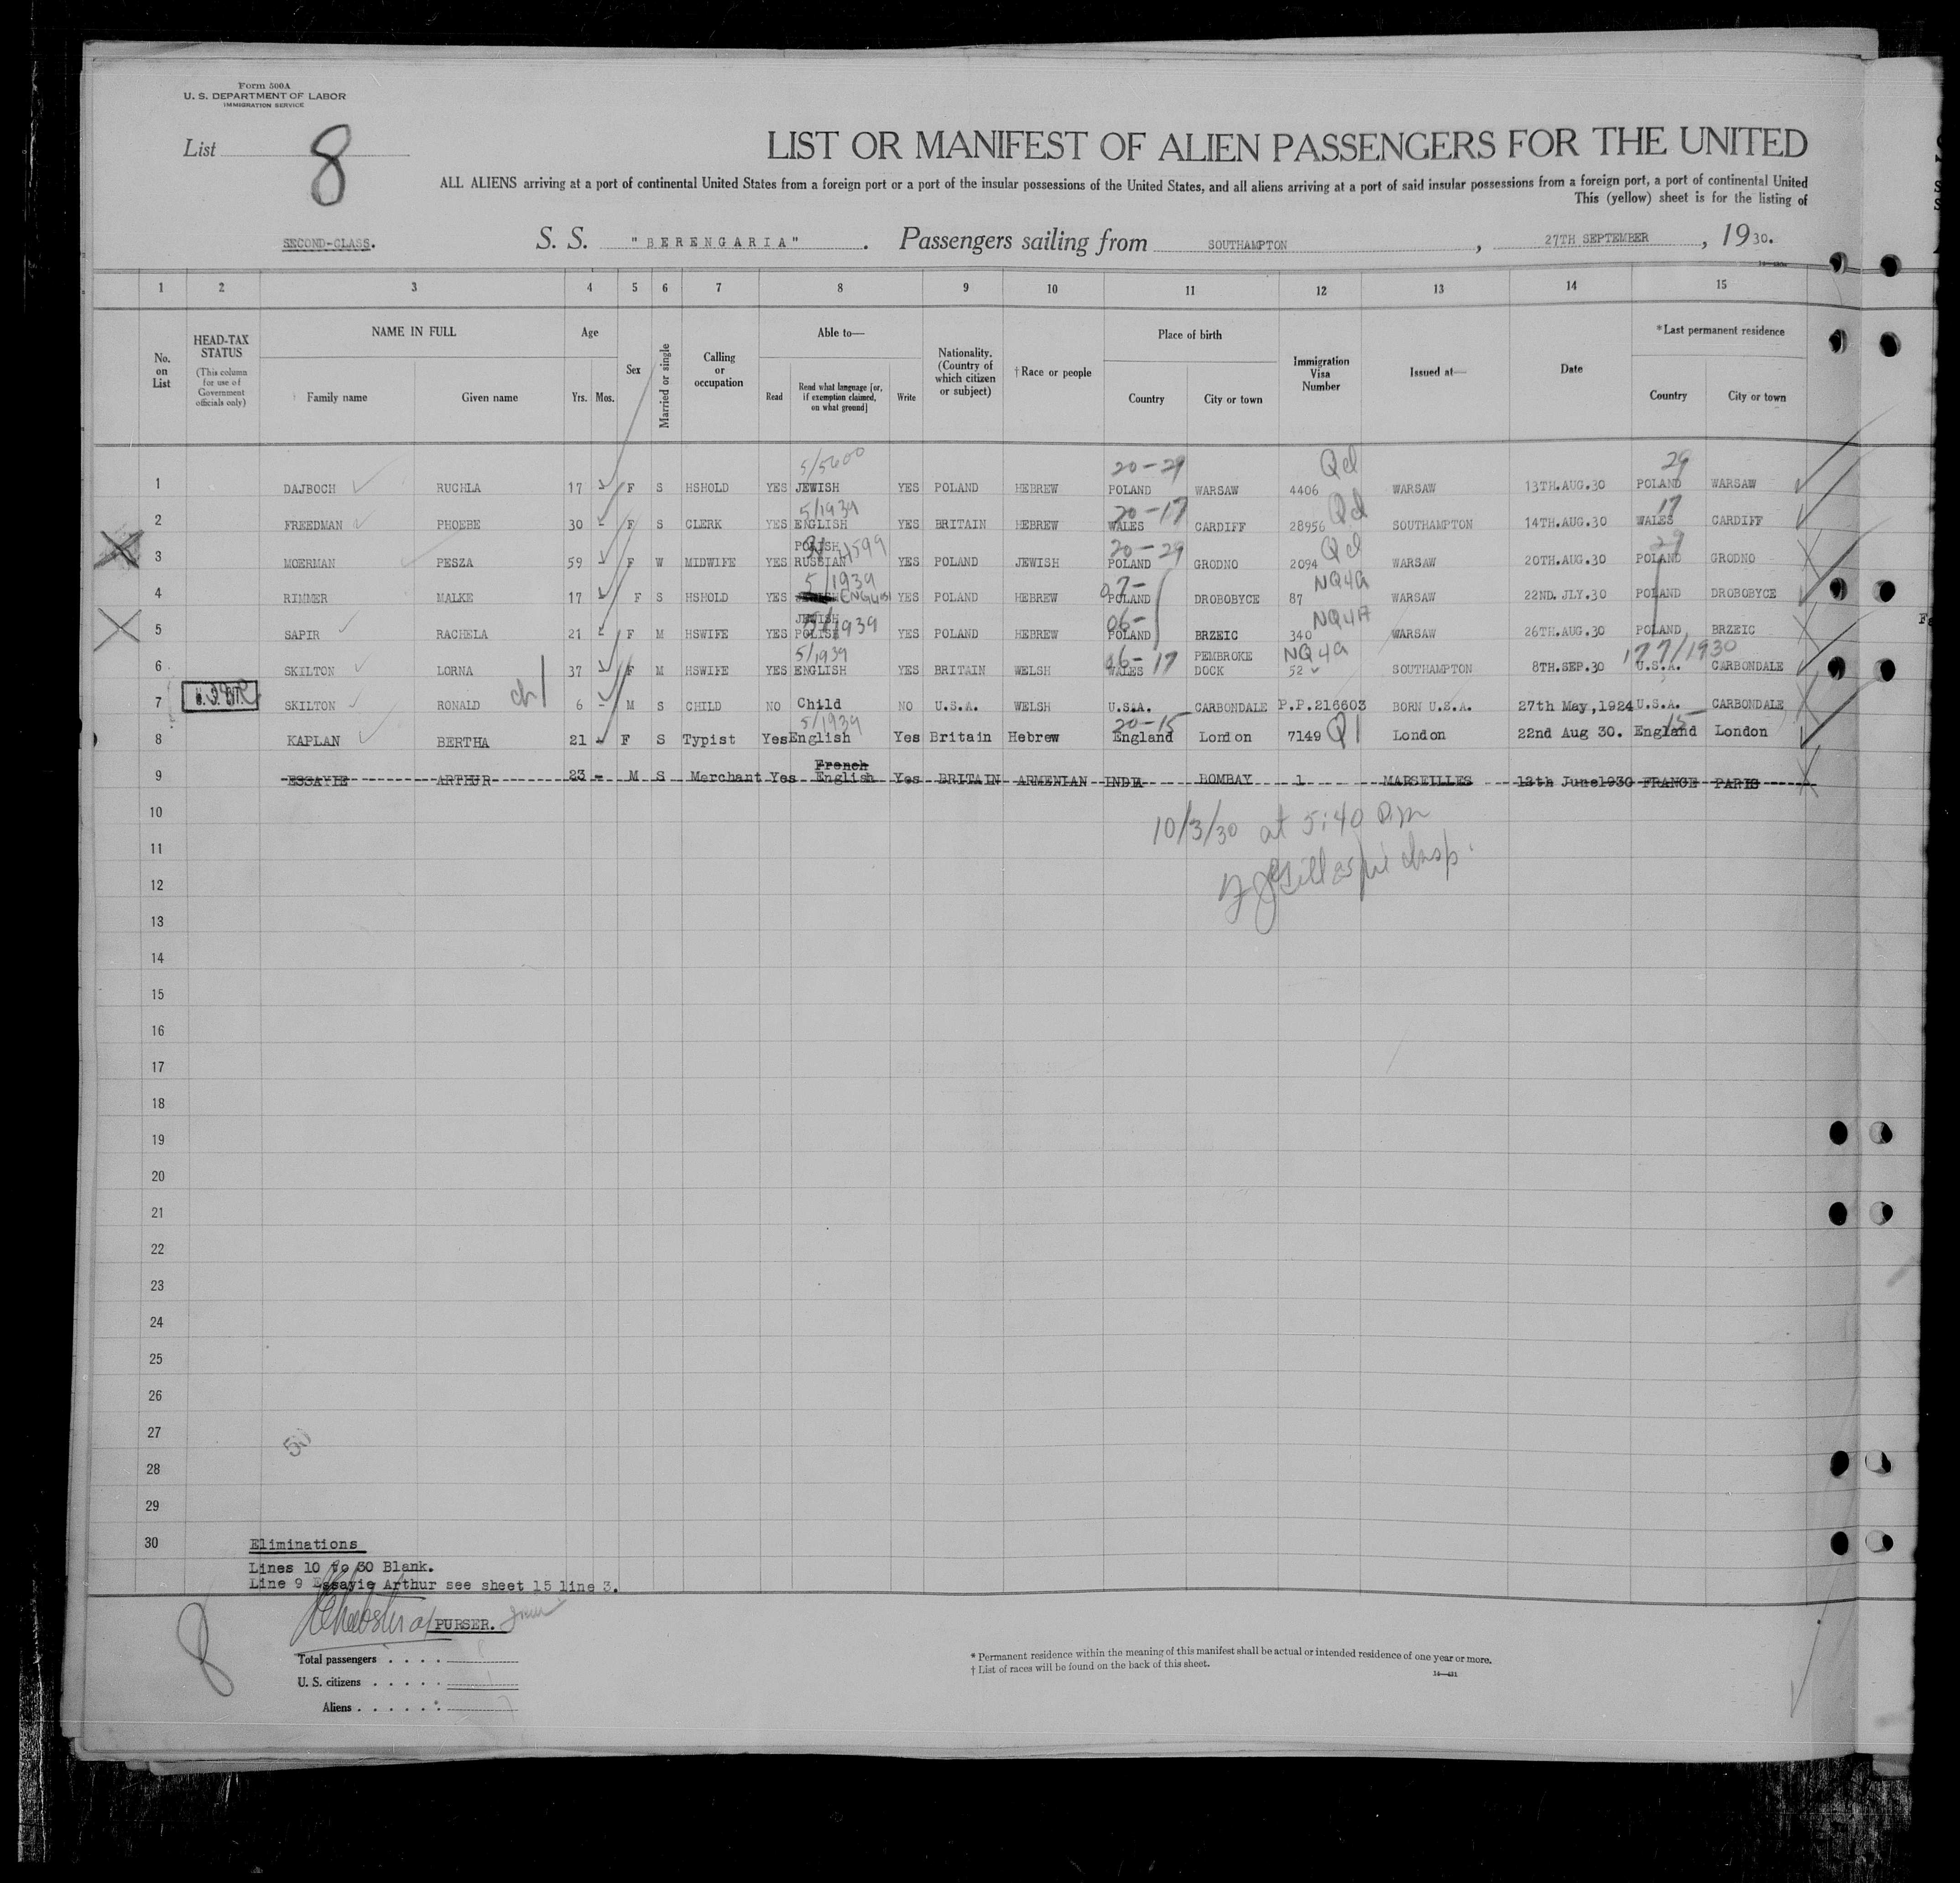 Form 500A
U. S. DEPARTMENT OF LABOR
IMMIGRATION SERVICE
List 8
LIST OR MANIFEST OF ALIEN PASSENGERS FOR THE UNITED
ALL ALIENS arriving at a port of continental United States from a foreign port or a port of the insular possessions of the United States, and all aliens arriving at a port of said insular possessions from a foreign port, a port of continental United
This (yellow) sheet is for the listing of
SECOND-CLASS. S. S. "BERENGARIA". Passengers sailing from SOUTHAMPTON, 27TH SEPTEMBER, 1930.
1 2 3 4 5 6 7 8 9 10 11 12 13 14 15
No. on List
HEAD-TAX STATUS
(This column for use of Government officials only)
NAME IN FULL
Family name Given name
Age
Yrs. Mos.
Sex
Married or single
Calling or occupation
Able to—
Read
Read what language [or, if exemption claimed, on what ground]
Write
Nationality. (Country of which citizen or subject)
†Race or people
Place of birth
Country City or town
Immigration Visa Number
Issued at—
Date
*Last permanent residence
Country City or town
5/5600 20-29 Qd 29
1 DAJBOCH RUCHLA 17 F S HSHOLD YES JEWISH YES POLAND HEBREW POLAND WARSAW 4406 WARSAW 13TH.AUG.30 POLAND WARSAW
5/1939 20-17 Qd 17
2 FREEDMAN PHOEBE 30 - F S CLERK YES ENGLISH YES BRITAIN HEBREW WALES CARDIFF 28956 SOUTHAMPTON 14TH.AUG.30 WALES CARDIFF
POLISH 4599 20-29 Qd 29
3 MOERMAN PESZA 59 F W MIDWIFE YES RUSSIAN YES POLAND JEWISH POLAND GRODNO 2094 WARSAW 20TH.AUG.30 POLAND GRODNO
5/1939 07- NQ4a
4 RIMMER MALKE 17 F S HSHOLD YES ENGLISH YES POLAND HEBREW POLAND DROBOBYCE 87 WARSAW 22ND. JLY.30 POLAND DROBOBYCE
JEWISH 5/1939 06- NQ4A
5 SAPIR RACHELA 21 F M HSWIFE YES POLISH YES POLAND HEBREW POLAND BRZEIC 340 WARSAW 26TH.AUG.30 POLAND BRZEIC
5/1939 06-17 PEMBROKE NQ4a 177/1930
6 SKILTON LORNA 37 F M HSWIFE YES ENGLISH YES BRITAIN WELSH WALES DOCK 52 SOUTHAMPTON 8TH.SEP.30 U.S.A. CARBONDALE
7 SKILTON RONALD ch 6 - M S CHILD NO Child NO U.S.A. WELSH U.S.A. CARBONDALE P.P.216603 BORN U.S.A. 27th May,1924 U.S.A. CARBONDALE
5/1939 20-15 15
8 KAPLAN BERTHA 21 - F S Typist Yes English Yes Britain Hebrew England London 7149 Q1 London 22nd Aug 30. England London
French
9 ESSAYIE ARTHUR 23 - M S Merchant Yes English Yes BRITAIN ARMENIAN INDIA BOMBAY 1 MARSEILLES 12th June1930 FRANCE PARIS
10
10/3/30 at 5:40 P.m
11
12
Gillespie Insp.
13
14
15
16
17
18
19
20
21
22
23
24
25
26
27
50
28
29
30
Eliminations
Lines 10 to 30 Blank.
Line 9 Essayie Arthur see sheet 15 line 3.
PURSER.
8
Total passengers . . . . 8
U. S. citizens . . . . . 1
Aliens . . . . . . 7
* Permanent residence within the meaning of this manifest shall be actual or intended residence of one year or more.
† List of races will be found on the back of this sheet.